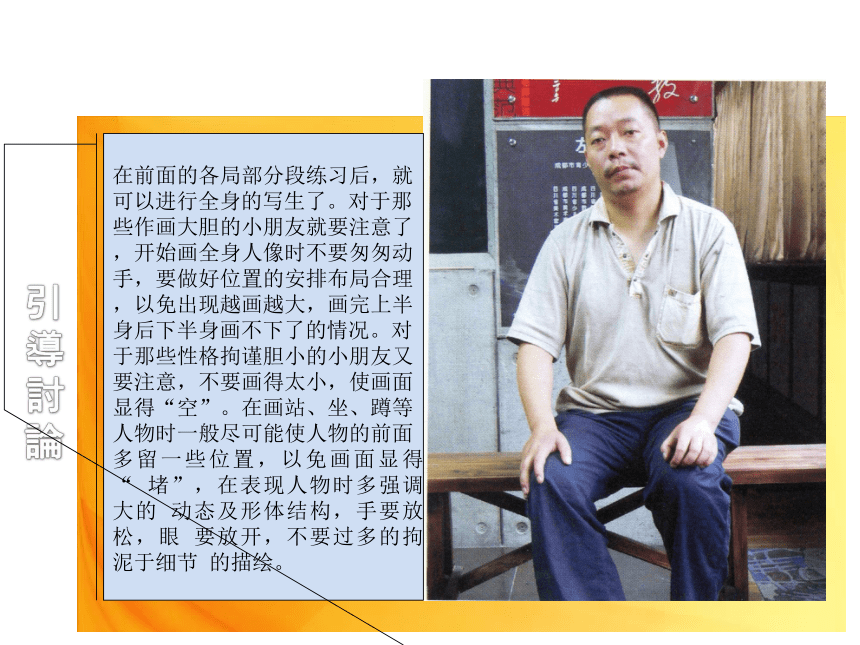 引
導
討
論
在前面的各局部分段练习后，就
可以进行全身的写生了。对于那
些作画大胆的小朋友就要注意了
，开始画全身人像时不要匆匆动
手，要做好位置的安排布局合理
，以免出现越画越大，画完上半
身后下半身画不下了的情况。对
于那些性格拘谨胆小的小朋友又
要注意，不要画得太小，使画面
显得“空”。在画站、坐、蹲等
人物时一般尽可能使人物的前面
多留一些位置，以免画面显得
“ 堵”，在表现人物时多强调
大的 动态及形体结构，手要放
松，眼 要放开，不要过多的拘
泥于细节 的描绘。
成都市青少